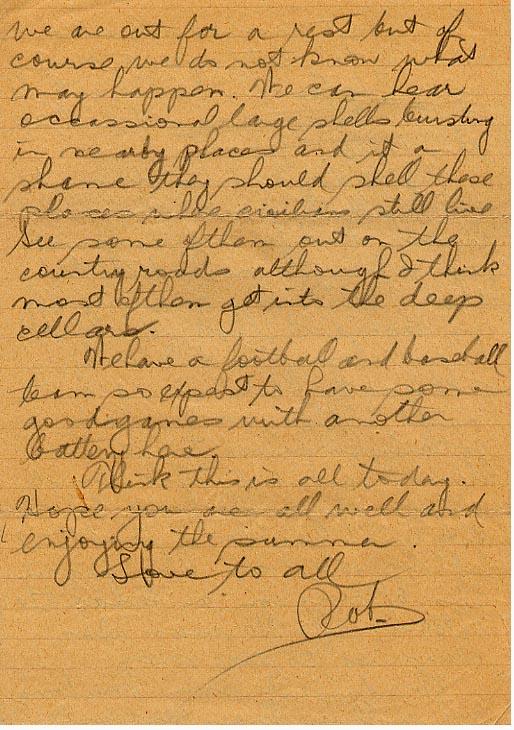 we are out for a rest but of
course we do not know what
may happen. We can hear
occassional large shells bursting
in nearby places and it a
shame they should shell these
places where civilians still live
See some of them out on the
country roads although I think
most of them get into the deep
cellars.
We have a football and baseball
team so expect to have some
good games with another
battery here.
Think this is all today.
Hope you are all well and
enjoying the summer.
Love to all
Rob.